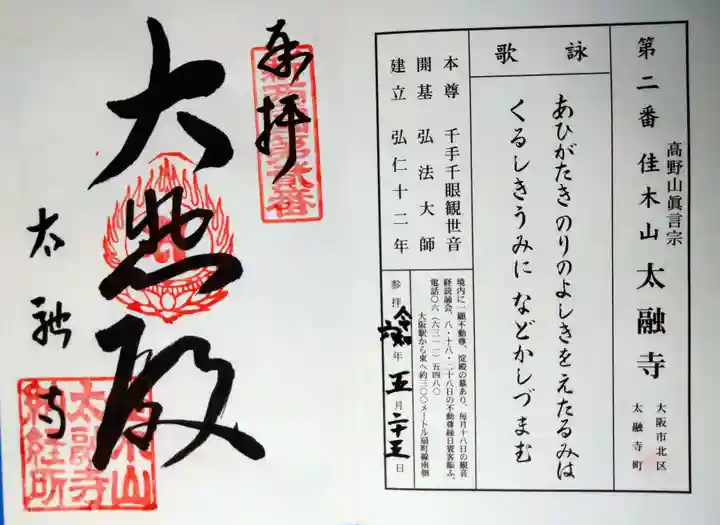 第二番
高野山眞言宗
佳木山 太融寺
大阪市北区
太融寺町
詠歌
あひがたきのりのよしきをえたるみは
くるしきうみに などかしづまむ
本尊 千手千眼観世音
開基 弘法大師
建立 弘仁十二年
境内に、願不動尊、淀殿の墓あり、毎月十八日の観音
経読誦会、八・十八・二十八日の不動尊縁日賽客賑ふ。
電話〇六(六三一一)五四八〇
大阪駅から東へ約三〇〇メートル扇町線南側
参拝 令和六年 五月二十五日
奉拝
大悲殿
太融寺
佳木山
太融寺
納経所